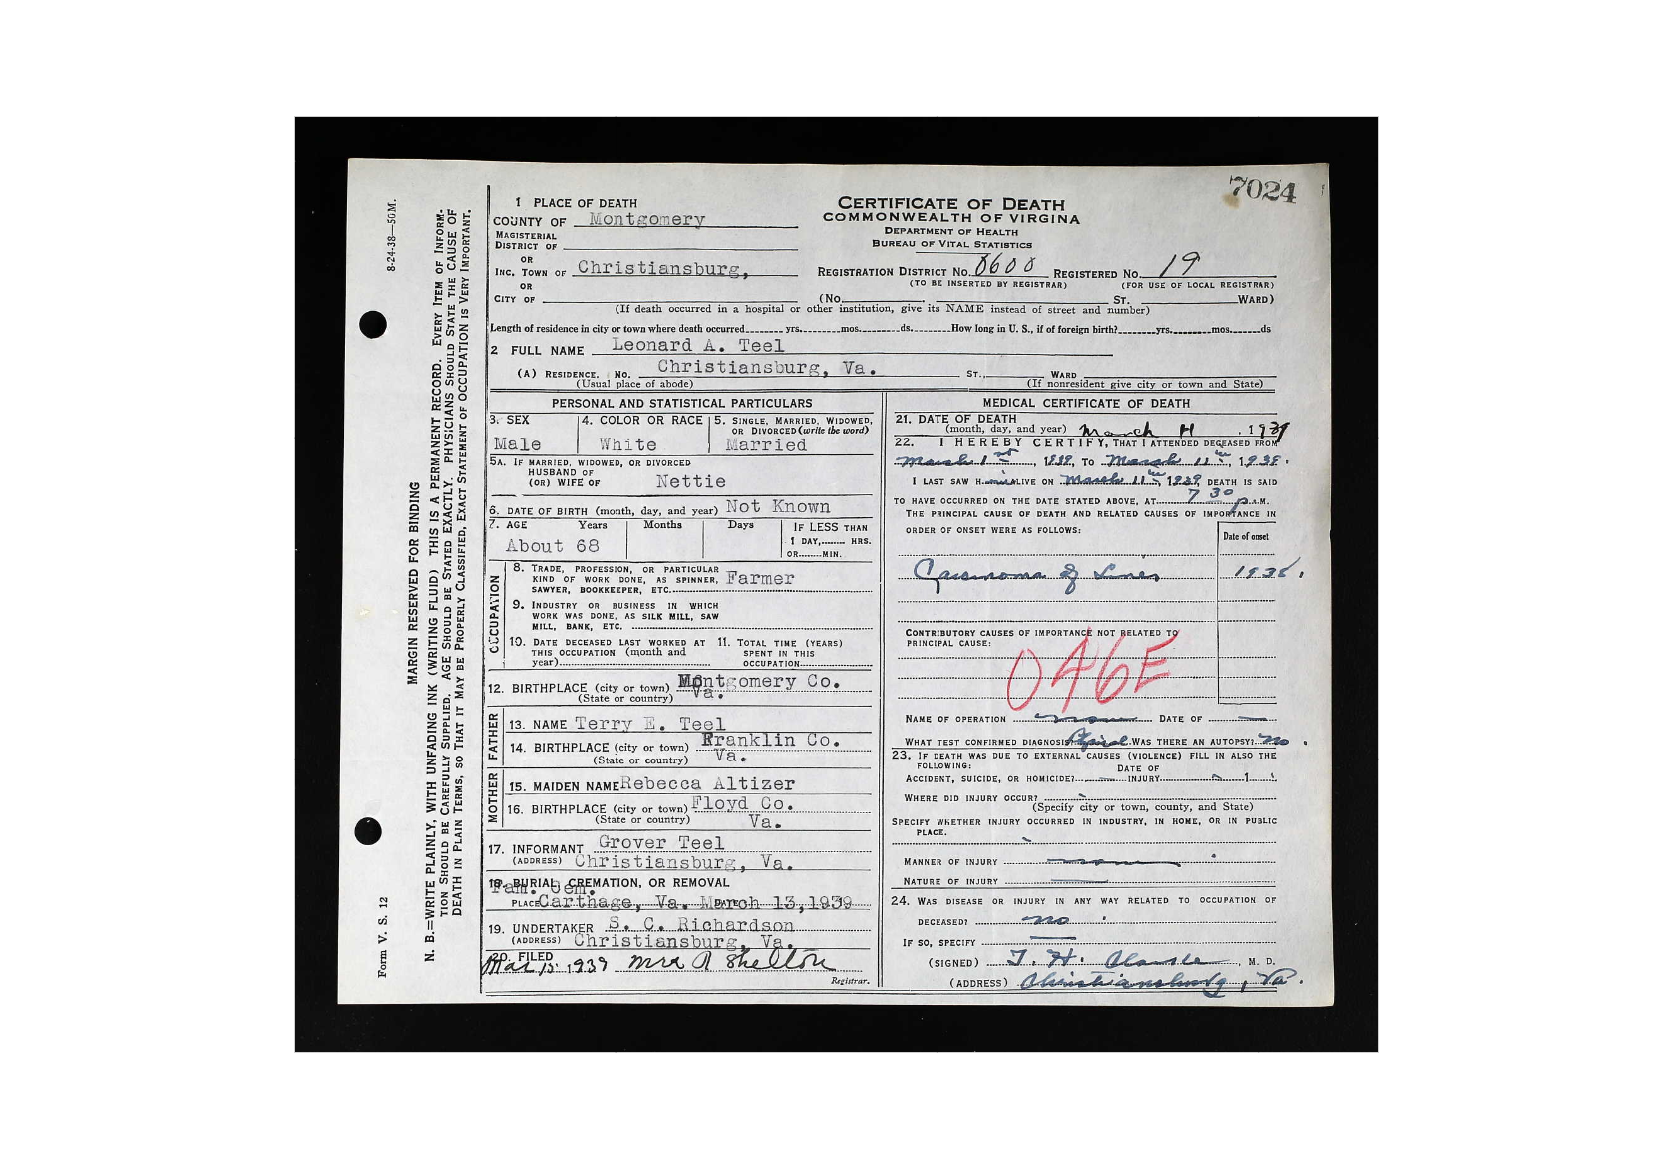 7024
8-24-38—50M.
MARGIN RESERVED FOR BINDING
N. B.=WRITE PLAINLY, WITH UNFADING INK (WRITING FLUID) THIS IS A PERMANENT RECORD. EVERY ITEM OF INFORM-
TION SHOULD BE CAREFULLY SUPPLIED. AGE SHOULD BE STATED EXACTLY. PHYSICIANS SHOULD STATE THE CAUSE OF
DEATH IN PLAIN TERMS, SO THAT IT MAY BE PROPERLY CLASSIFIED, EXACT STATEMENT OF OCCUPATION IS VERY IMPORTANT.
Form V. S. 12
1 PLACE OF DEATH
COUNTY OF Montgomery
MAGISTERIAL
DISTRICT OF
OR
INC. TOWN OF Christiansburg,
OR
CITY OF
CERTIFICATE OF DEATH
COMMONWEALTH OF VIRGINA
DEPARTMENT OF HEALTH
BUREAU OF VITAL STATISTICS
REGISTRATION DISTRICT NO. 8600 REGISTERED NO. 19
(TO BE INSERTED BY REGISTRAR) (FOR USE OF LOCAL REGISTRAR)
(No. ST. WARD)
(If death occurred in a hospital or other institution, give its NAME instead of street and number)
Length of residence in city or town where death occurred yrs. mos. ds. How long in U. S., if of foreign birth? yrs. mos. ds
2 FULL NAME Leonard A. Teel
(A) RESIDENCE. No. Christiansburg, Va. ST., WARD
(Usual place of abode) (If nonresident give city or town and State)
PERSONAL AND STATISTICAL PARTICULARS
3. SEX Male
4. COLOR OR RACE White
5. SINGLE, MARRIED, WIDOWED,
OR DIVORCED (write the word)
Married
5A. IF MARRIED, WIDOWED, OR DIVORCED
HUSBAND OF
(OR) WIFE OF Nettie
6. DATE OF BIRTH (month, day, and year) Not Known
7. AGE Years Months Days IF LESS THAN
1 DAY, HRS.
OR MIN.
About 68
OCCUPATION
8. TRADE, PROFESSION, OR PARTICULAR
KIND OF WORK DONE, AS SPINNER, Farmer
SAWYER, BOOKKEEPER, ETC.
9. INDUSTRY OR BUSINESS IN WHICH
WORK WAS DONE, AS SILK MILL, SAW
MILL, BANK, ETC.
10. DATE DECEASED LAST WORKED AT
THIS OCCUPATION (month and
year)
11. TOTAL TIME (YEARS)
SPENT IN THIS
OCCUPATION
12. BIRTHPLACE (city or town) Montgomery Co.
(State or country) Va.
FATHER
13. NAME Terry E. Teel
14. BIRTHPLACE (city or town) Franklin Co.
(State or country) Va.
MOTHER
15. MAIDEN NAME Rebecca Altizer
16. BIRTHPLACE (city or town) Floyd Co.
(State or country) Va.
17. INFORMANT Grover Teel
(ADDRESS) Christiansburg, Va.
18. BURIAL, CREMATION, OR REMOVAL
Fam. Cem.
PLACE Carthage, Va. DATE March 13, 1939
19. UNDERTAKER S. C. Richardson
(ADDRESS) Christiansburg, Va.
20. FILED
Mar 15 1939 Mrs R Shelton
Registrar.
MEDICAL CERTIFICATE OF DEATH
21. DATE OF DEATH
(month, day, and year) March 11, 1939
22. I HEREBY CERTIFY, THAT I ATTENDED DECEASED FROM
March 1st, 1939, TO March 11th, 1939.
I LAST SAW H im ALIVE ON March 11th, 1939, DEATH IS SAID
TO HAVE OCCURRED ON THE DATE STATED ABOVE, AT 7 30 p.M.
THE PRINCIPAL CAUSE OF DEATH AND RELATED CAUSES OF IMPORTANCE IN
ORDER OF ONSET WERE AS FOLLOWS:
Date of onset
Carcinoma of Liver 1938.
CONTRIBUTORY CAUSES OF IMPORTANCE NOT RELATED TO
PRINCIPAL CAUSE:
046E
NAME OF OPERATION none DATE OF —
WHAT TEST CONFIRMED DIAGNOSIS WAS THERE AN AUTOPSY? no
23. IF DEATH WAS DUE TO EXTERNAL CAUSES (VIOLENCE) FILL IN ALSO THE
FOLLOWING:
DATE OF
ACCIDENT, SUICIDE, OR HOMICIDE? — INJURY 1
WHERE DID INJURY OCCUR?
(Specify city or town, county, and State)
SPECIFY WHETHER INJURY OCCURRED IN INDUSTRY, IN HOME, OR IN PUBLIC
PLACE.
MANNER OF INJURY none
NATURE OF INJURY —
24. WAS DISEASE OR INJURY IN ANY WAY RELATED TO OCCUPATION OF
DECEASED? no
IF SO, SPECIFY
(SIGNED) M. D.
(ADDRESS) Christiansburg, Va.